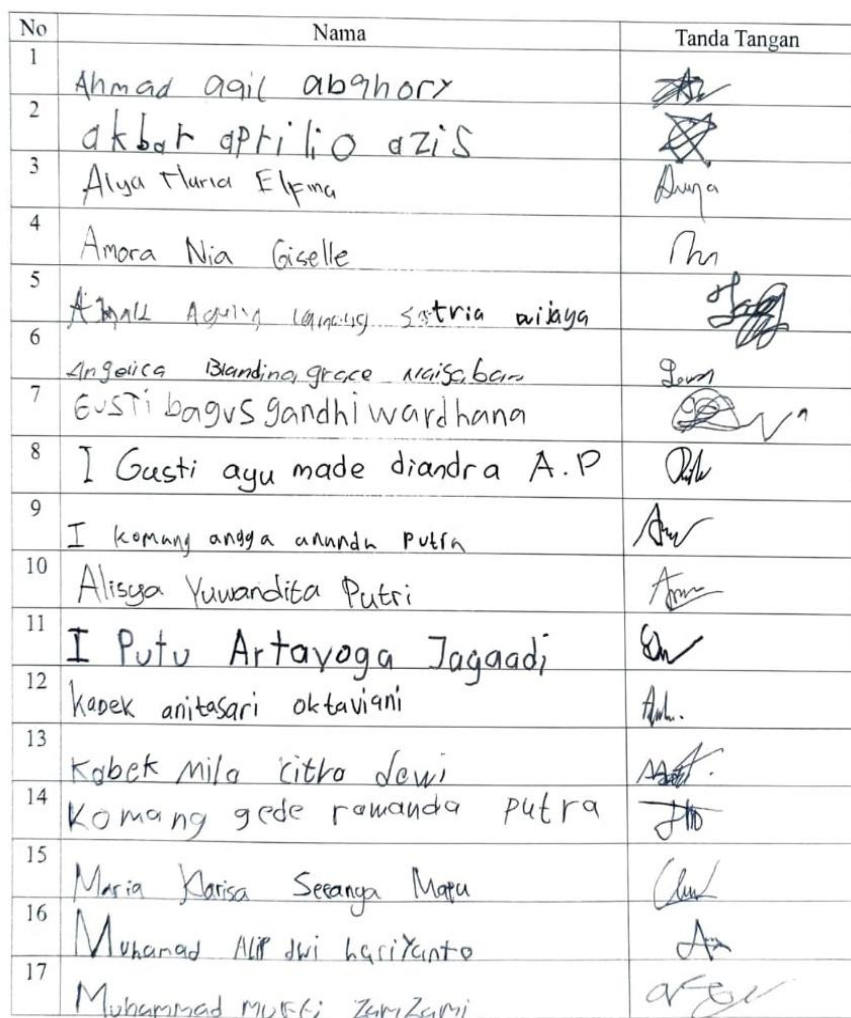 No Nama Tanda Tangan
1 Ahmad aqil abqhory
2 akbar aprilio azis
3 Alya Maria Elfina
4 Amora Nia Giselle
5 Agung satria wijaya
6 Angelica Blandina grace Naisaban
7 GUSTi bagus gandhi wardhana
8 I Gusti ayu made diandra A.P
9 I komang angga ananda putra
10 Alisya Yuwandita Putri
11 I Putu Artayoga Jagaadi
12 kadek anitasari oktaviani
13 Kadek Mila citra dewi
14 Komang gede ramanda putra
15 Maria Klarisa Mapu
16 Muhamad Alif dwi hariyanto
17 Muhammad mufti zamzami